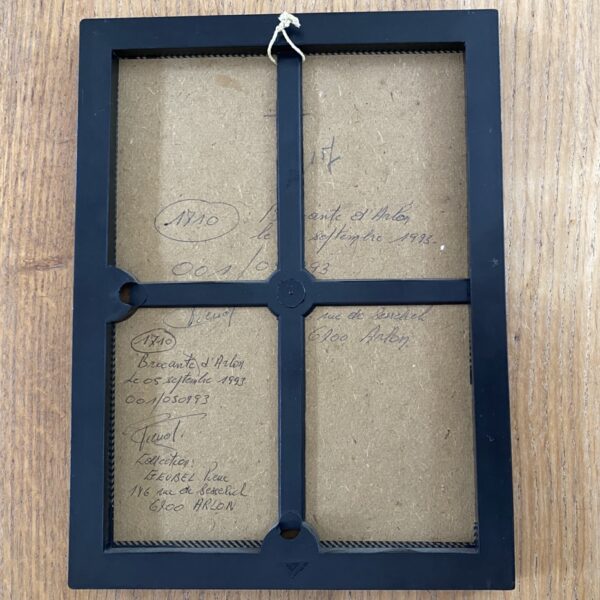 17
1710 : Brocante d'Arlon
le septembre 1993
001/05 93
rue de Sesselich
6700 Arlon
1710
Brocante d'Arlon
Le 05 septembre 1993
001/050993
Collection:
GEUBEL Pierre
186 rue de Sesselich
6700 ARLON